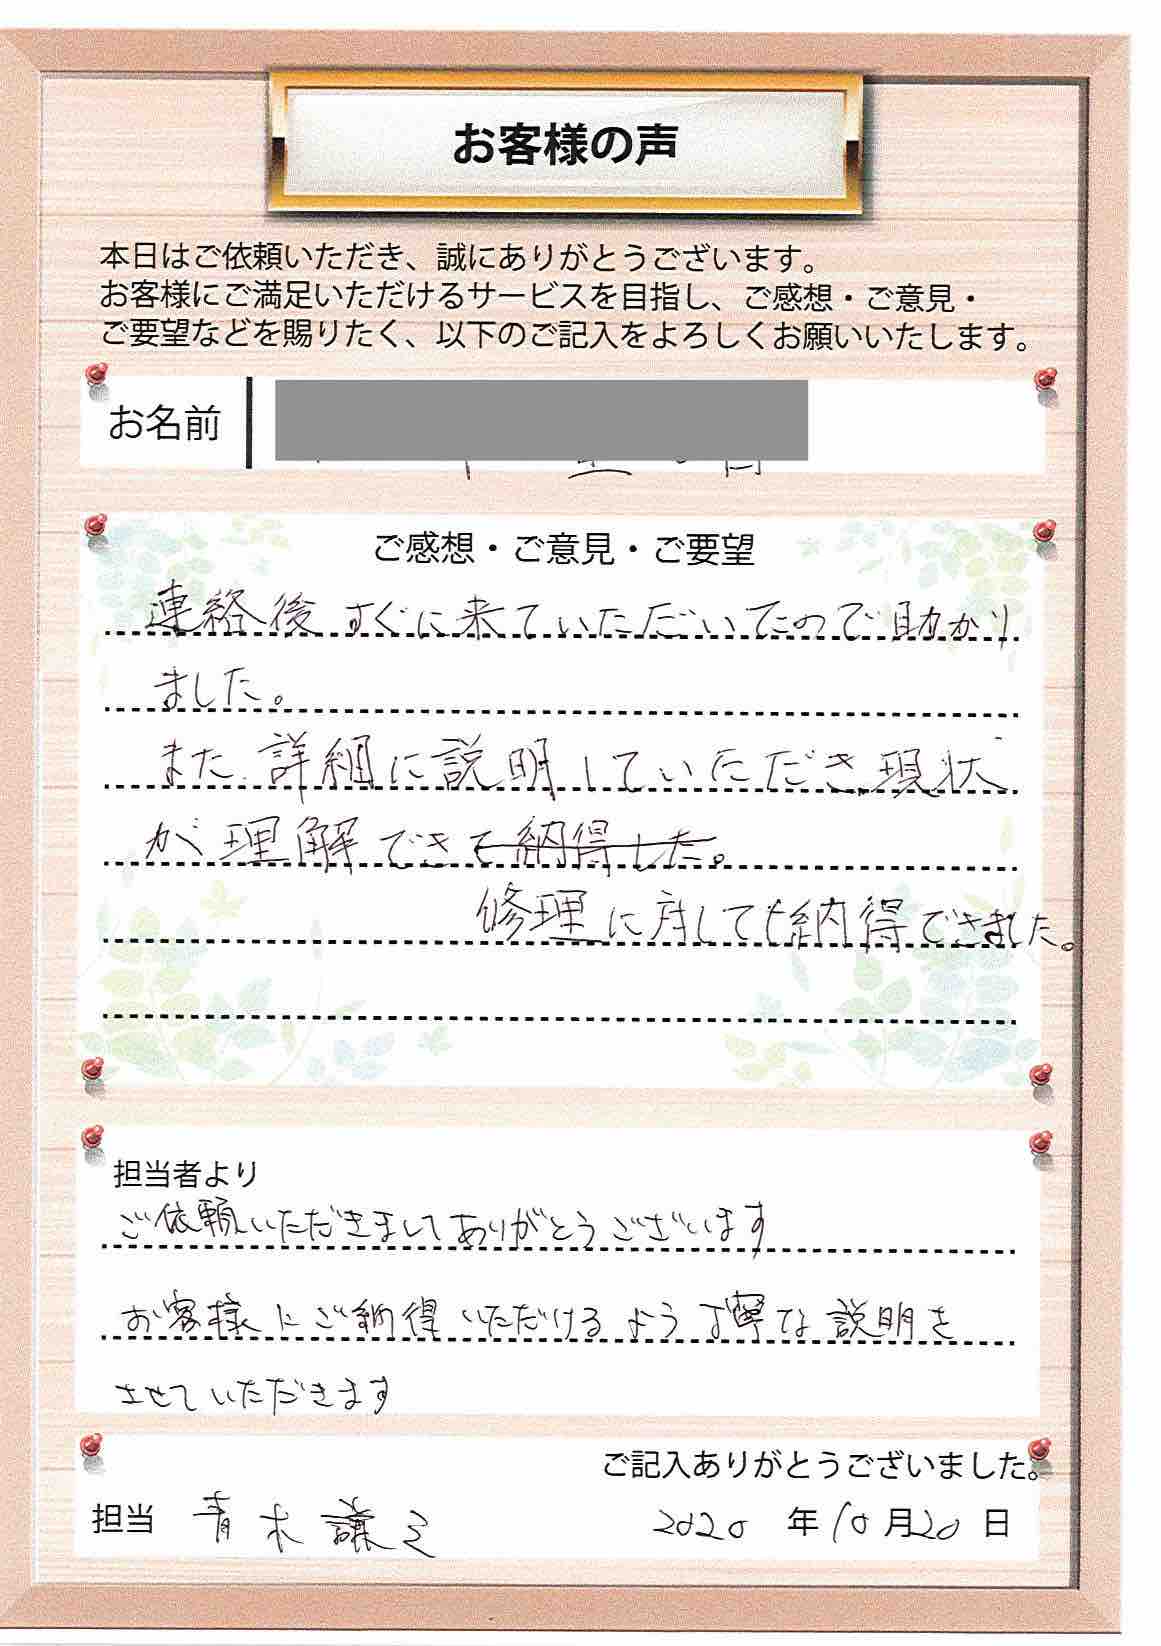 お客様の声
本日はご依頼いただき、誠にありがとうございます。
お客様にご満足いただけるサービスを目指し、ご感想・ご意見・
ご要望などを賜りたく、以下のご記入をよろしくお願いいたします。
お名前
ご感想・ご意見・ご要望
連絡後すぐに来ていただいたので助かり
ました。
また、詳細に説明していただき、現状
が理解できて納得した。
修理に対しても納得できました。
担当者より
ご依頼いただきましてありがとうございます
お客様にご納得いただけるよう丁寧な説明を
させていただきます
ご記入ありがとうございました。
担当 青木譲之 2020年10月20日